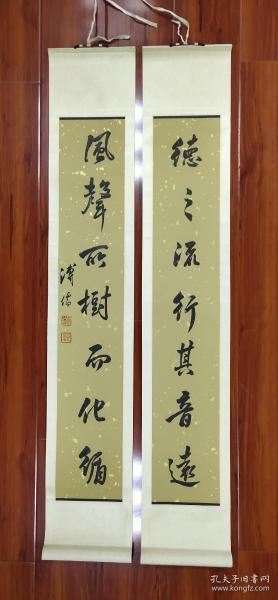 德之流行其音遠
風聲所樹而化循
溥儒
孔夫子旧书网